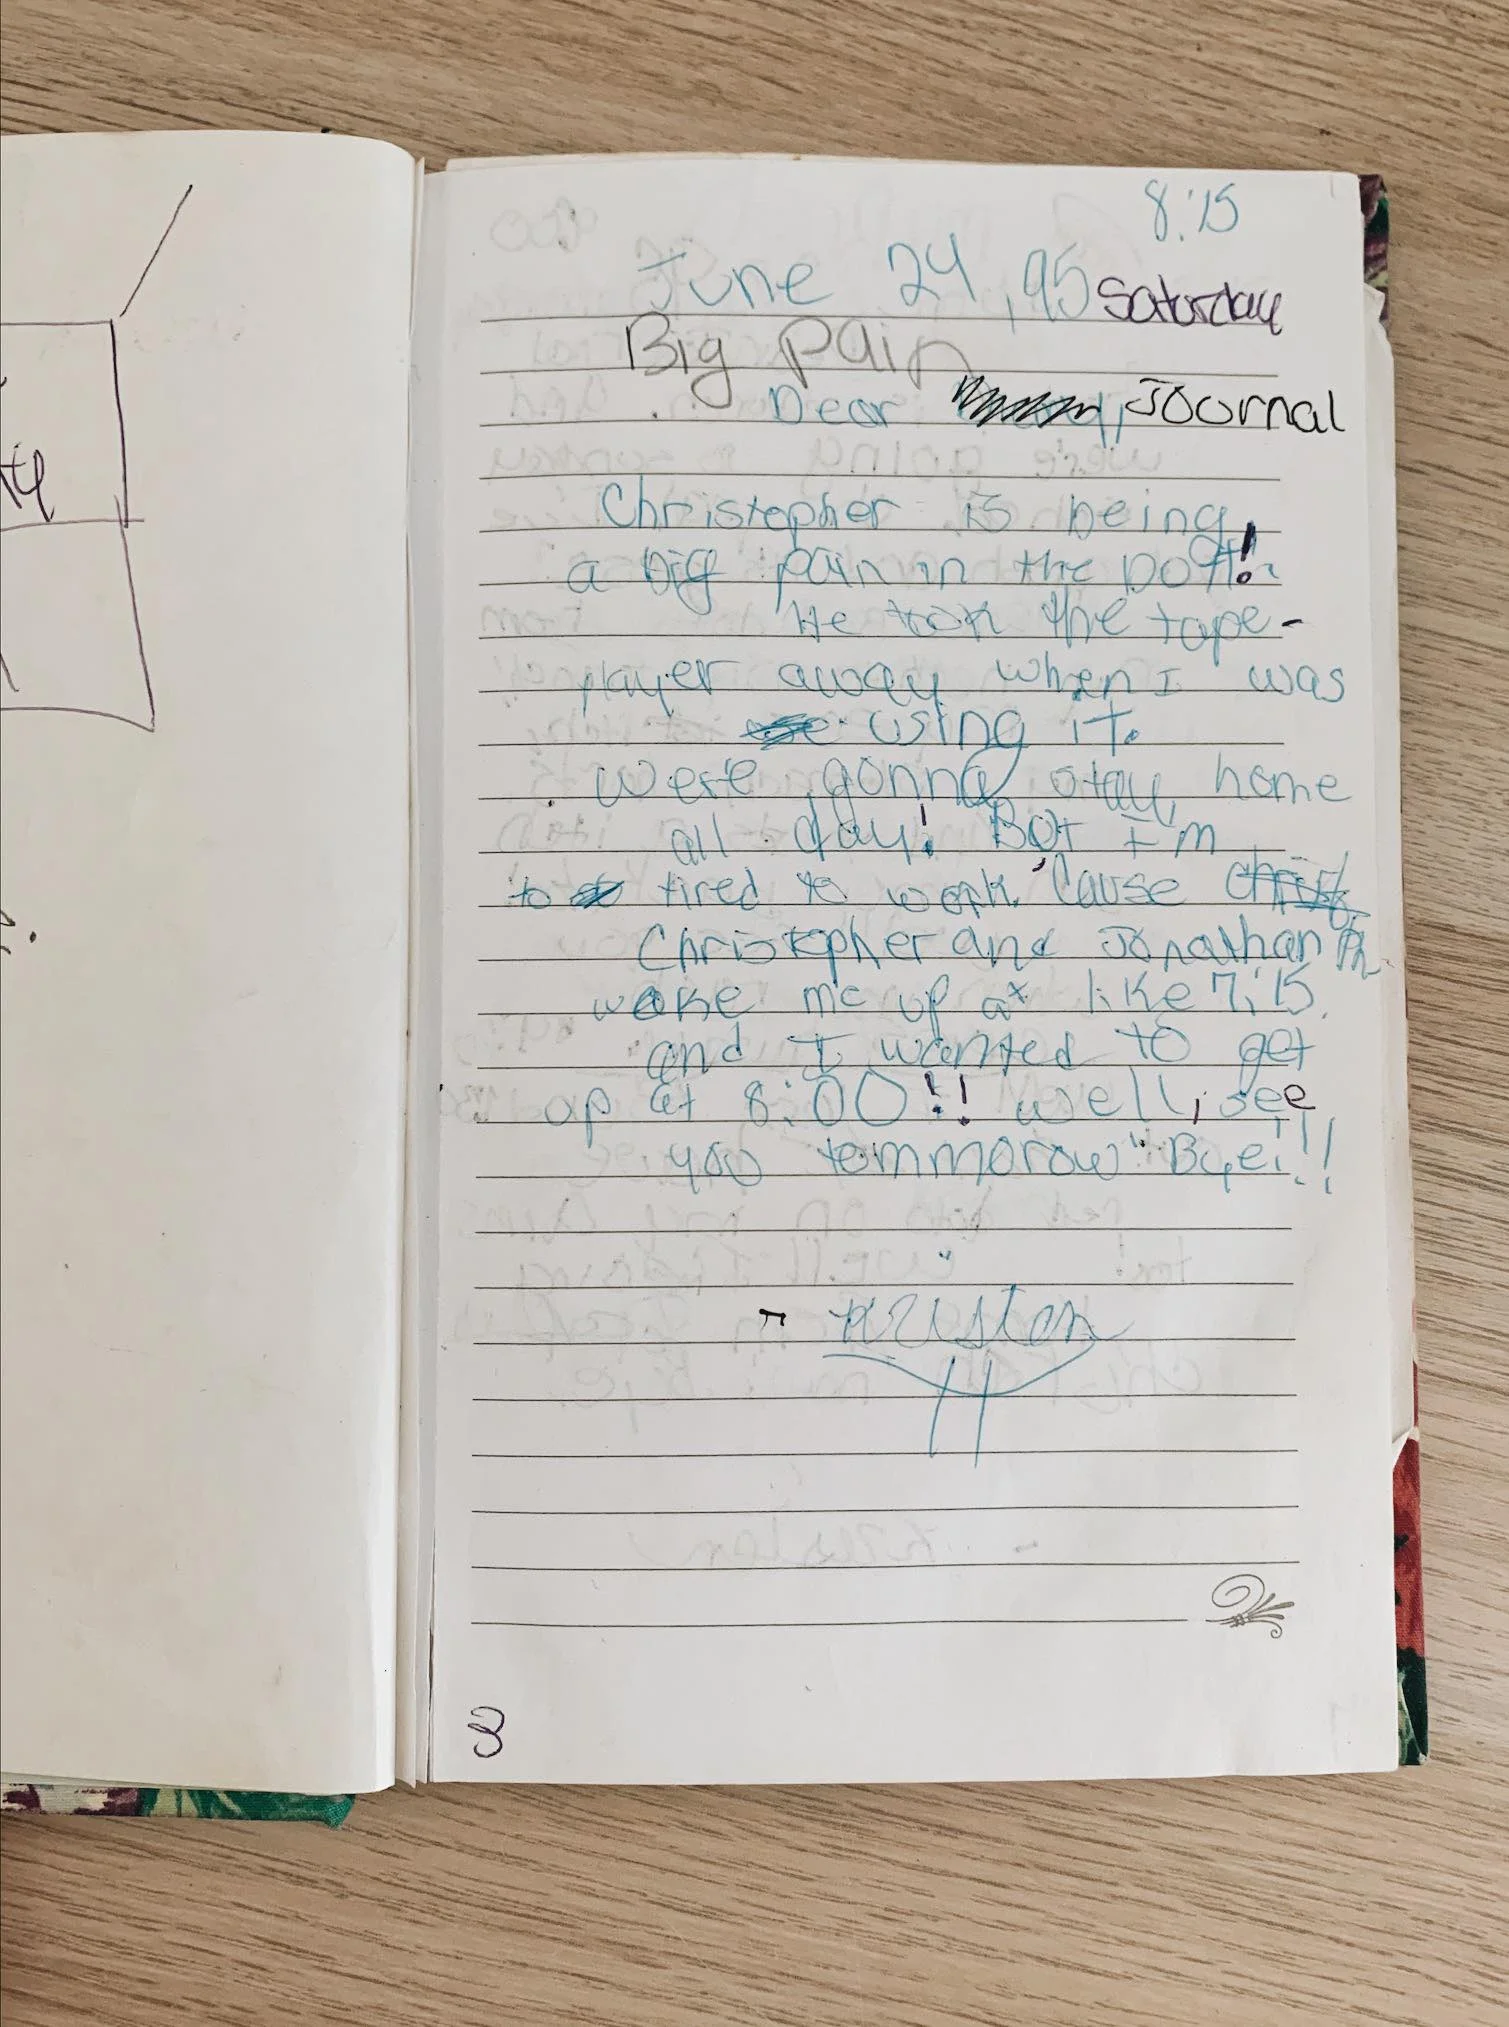 8:15
June 24, 95 Saturday
Big Pain
Dear Journal
Christopher is being
a big pain in the bott!
He took the tape-
player away when I was
using it.
were gonna stay home
all day! But I'm
to tired to work. 'Cause Chris
Christopher and Jonathan
woke me up at like 7:15
and I wanted to get
up at 8:00!! well, see
you tommorow" Bye!!!
- Kristen
3